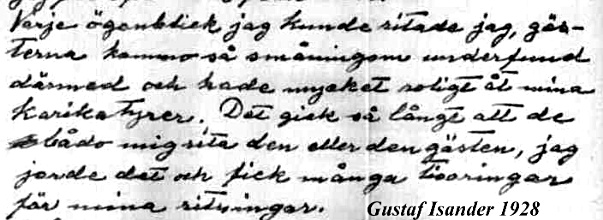 Varje ögonblick jag kunde ritade jag, gäs-
terna kommo så småningom underfund
därmed och hade mycket roligt åt mina
karikatyrer. Det gick så långt att de
bådo mig rita den eller den gästen, jag
jorde det och fick många tioöringar
för mina ritningar.
Gustaf Isander 1928